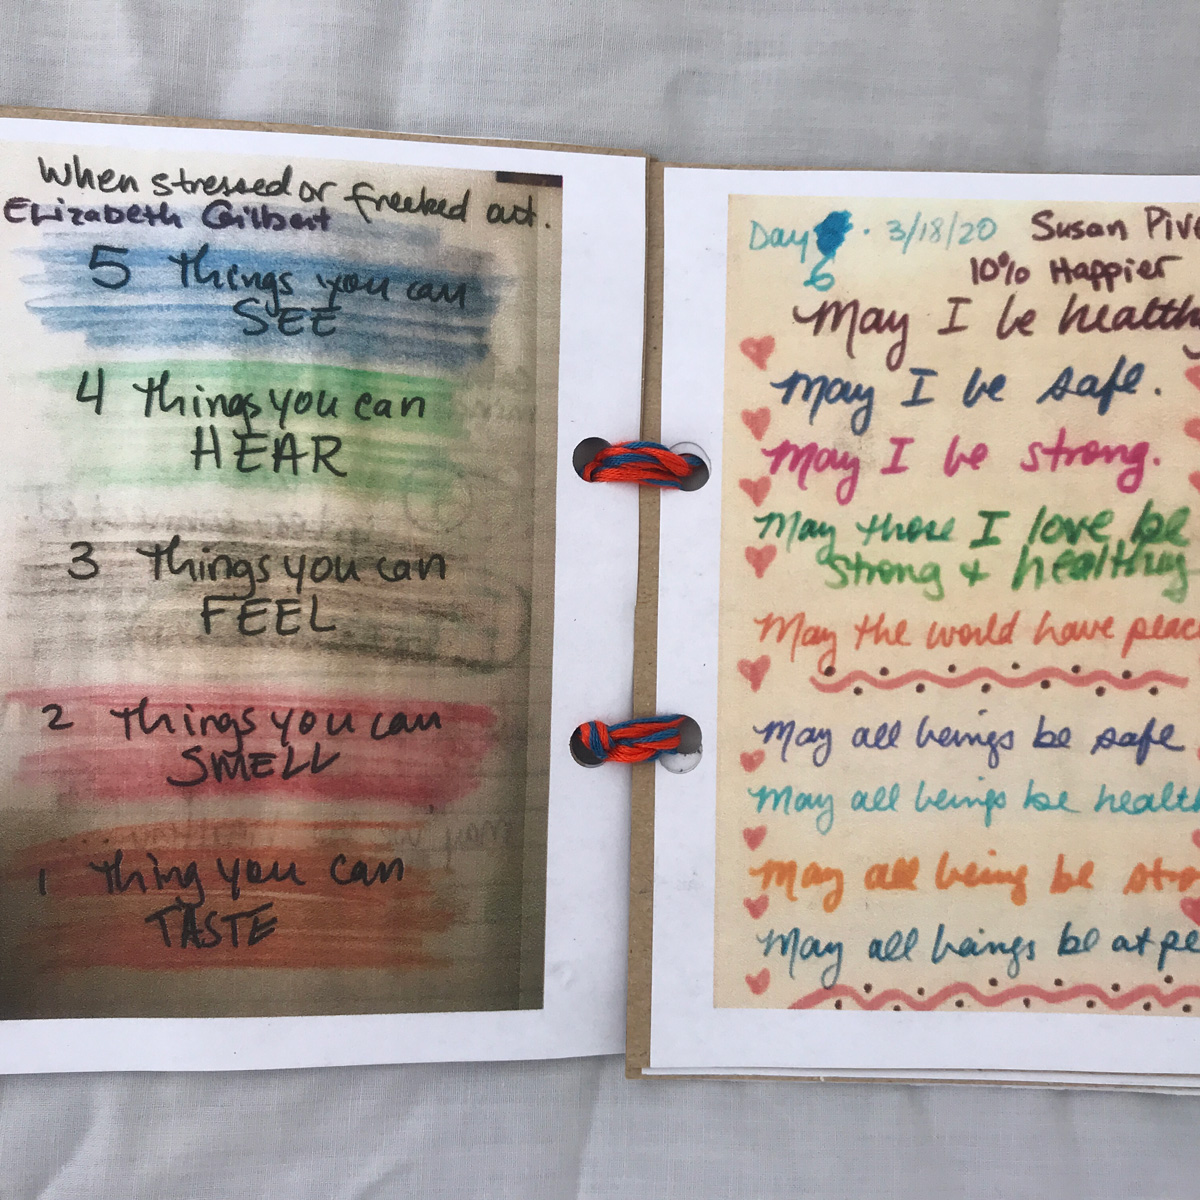 When stressed or freaked out.
Elizabeth Gilbert
5 things you can
SEE
4 things you can
HEAR
3 things you can
FEEL
2 things you can
SMELL
1 thing you can
TASTE
Day 6 · 3/18/20 Susan Pive
10% Happier
May I be health
May I be safe.
May I be strong.
May those I love be
strong + healthy
May the world have peac
May all beings be safe
May all beings be healt
May all being be stro
May all beings be at pe